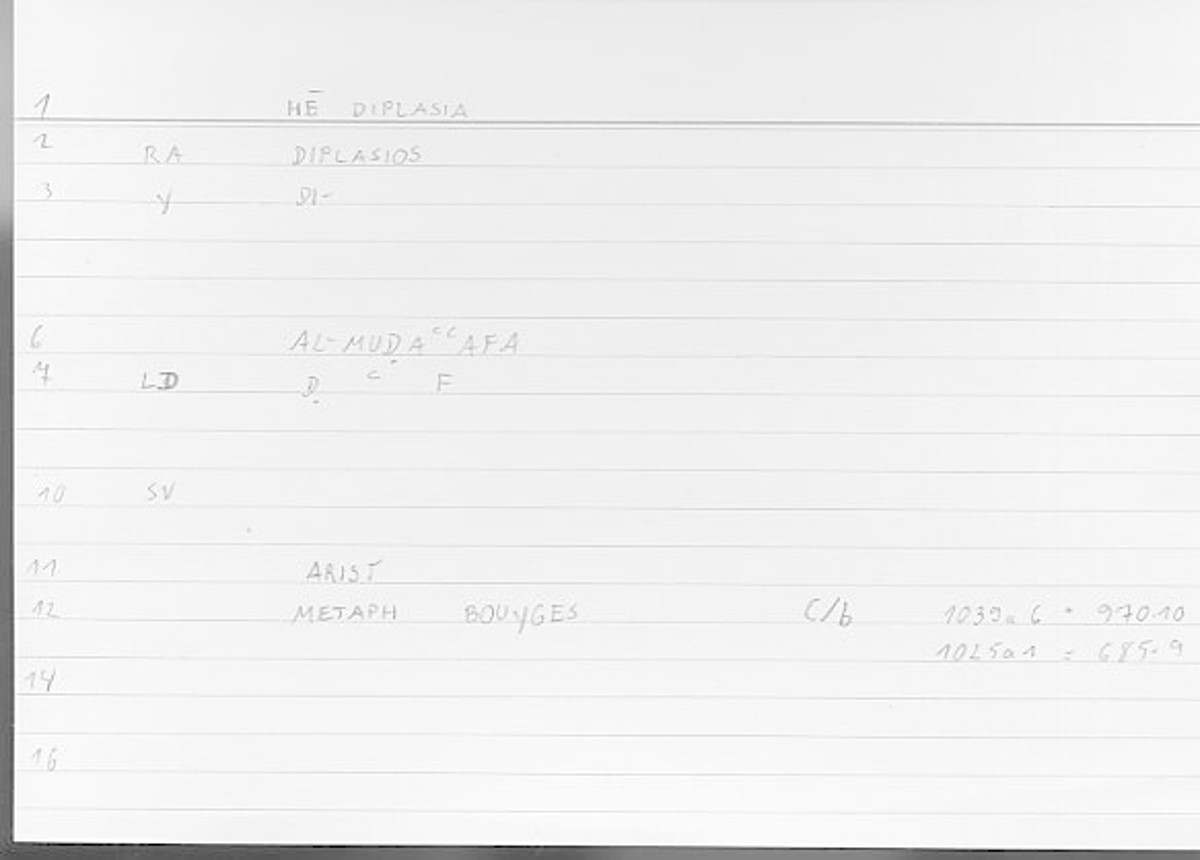 1 HĒ DIPLASIA
2 RA DIPLASIOS
3 y DI-
6 AL-MUḌAʿʿAFA
7 LD Ḍ ʿ F
10 SV
11 ARIST
12 METAPH BOUYGES C/b 1039a6 = 970.10
1025a1 = 685.9
14
16